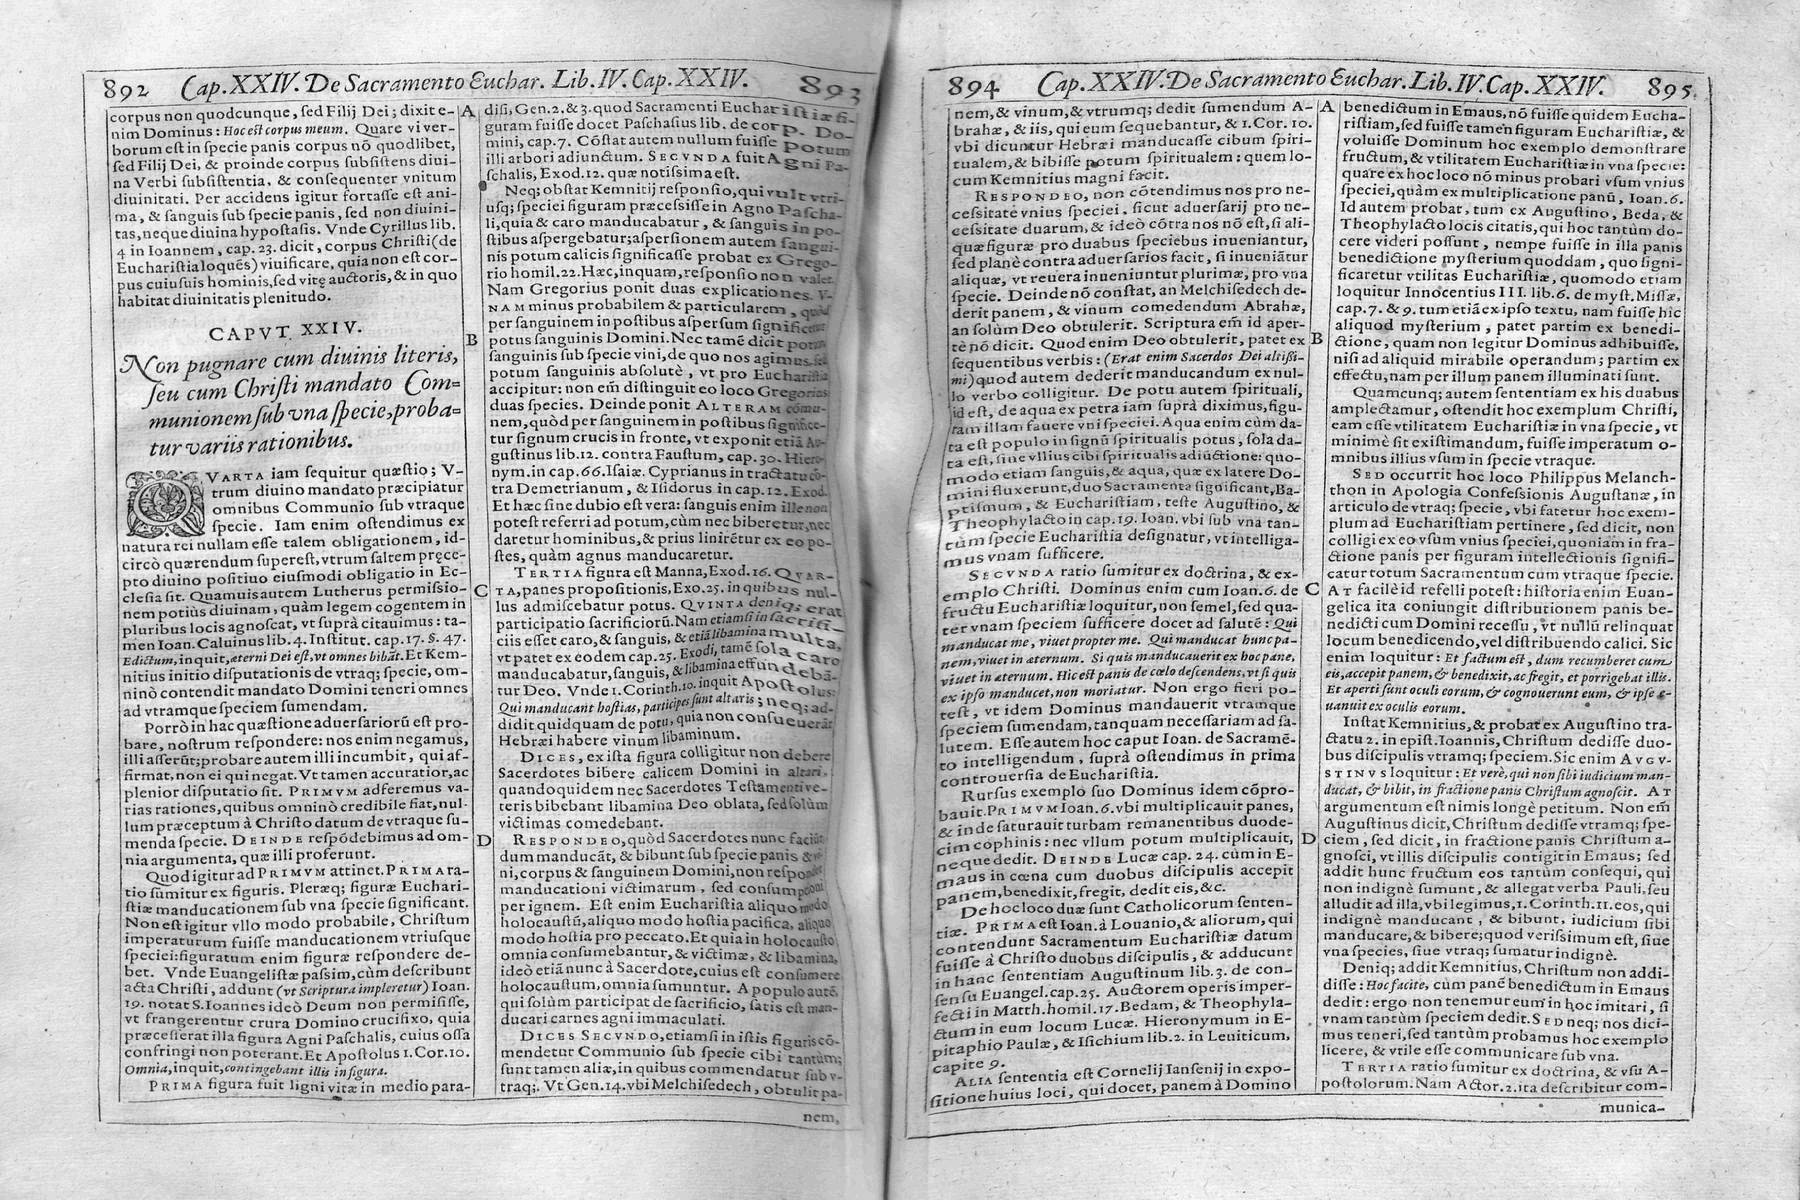 892 Cap. XXIV. De Sacramento Euchar. Lib. IV. Cap. XXIV. 893
corpus non quodcunque, sed Filij Dei; dixit e-
nim Dominus: Hoc est corpus meum. Quare vi ver-
borum est in specie panis corpus nõ quodlibet,
sed Filij Dei, & proinde corpus subsistens diui-
na Verbi subsistentia, & consequenter vnitum
diuinitati. Per accidens igitur fortasse est ani-
ma, & sanguis sub specie panis, sed non diuini-
tas, neque diuina hypostasis. Vnde Cyrillus lib.
4 in Ioannem, cap. 23. dicit, corpus Christi (de
Eucharistia loquẽs) viuificare, quia non est cor-
pus cuiusuis hominis, sed vitę auctoris, & in quo
habitat diuinitatis plenitudo.
CAPVT XXIV.
Non pugnare cum diuinis literis,
seu cum Christi mandato Com-
munionem sub vna specie, proba-
tur variis rationibus.
QVARTA iam sequitur quæstio; V-
trum diuino mandato præcipiatur
omnibus Communio sub vtraque
specie. Iam enim ostendimus ex
natura rei nullam esse talem obligationem, id-
circò quærendum superest, vtrum saltem pręce-
pto diuino positiuo eiusmodi obligatio in Ec-
clesia sit. Quamuis autem Lutherus permissio-
nem potiùs diuinam, quàm legem cogentem in
pluribus locis agnoscat, vt suprà citauimus: ta-
men Ioan. Caluinus lib. 4. Institut. cap. 17. §. 47.
Edictum, inquit, æterni Dei est, vt omnes bibãt. Et Kem-
nitius initio disputationis de vtraq; specie, om-
ninò contendit mandato Domini teneri omnes
ad vtramque speciem sumendam.
Porrò in hac quæstione aduersariorũ est pro-
bare, nostrum respondere: nos enim negamus,
illi asserũt; probare autem illi incumbit, qui af-
firmat, non ei qui negat. Vt tamen accuratior, ac
plenior disputatio sit. PRIMVM adferemus va-
rias rationes, quibus omninò credibile fiat, nul-
lum præceptum à Christo datum de vtraque su-
menda specie. DEINDE respõdebimus ad om-
nia argumenta, quæ illi proferunt.
Quod igitur ad PRIMVM attinet. PRIMA ra-
tio sumitur ex figuris. Pleræq; figuræ Euchari-
stiæ manducationem sub vna specie significant.
Non est igitur vllo modo probabile, Christum
imperaturum fuisse manducationem vtriusque
speciei: figuratum enim figuræ respondere de-
bet. Vnde Euangelistæ passim, cùm describunt
acta Christi, addunt (vt Scriptura impleretur) Ioan.
19. notat S. Ioannes ideò Deum non permisisse,
vt frangerentur crura Domino crucifixo, quia
præcesserat illa figura Agni Paschalis, cuius ossa
confringi non poterant. Et Apostolus 1. Cor. 10.
Omnia, inquit, contingebant illis in figura.
PRIMA figura fuit ligni vitæ in medio para-
A
B
C
D
disi, Gen. 2. & 3. quod Sacramenti Eucharistiæ fi-
guram fuisse docet Paschasius lib. de corp. Do-
mini, cap. 7. Cõstat autem nullum fuisse potum
illi arbori adiunctum. SECVNDA fuit Agni Pa-
schalis, Exod. 12. quæ notissima est.
Neq; obstat Kemnitij responsio, qui vult vtri-
usq; speciei figuram præcessisse in Agno Pascha-
li, quia & caro manducabatur, & sanguis in po-
stibus aspergebatur; aspersionem autem sangui-
nis potum calicis significasse probat ex Grego-
rio homil. 22. Hæc, inquam, responsio non valet.
Nam Gregorius ponit duas explicationes. V-
NAM minus probabilem & particularem, quòd
per sanguinem in postibus aspersum significetur
potus sanguinis Domini. Nec tamẽ dicit potum
sanguinis sub specie vini, de quo nos agimus, sed
potum sanguinis absolutè, vt pro Eucharistia
accipitur: non em̃ distinguit eo loco Gregorius
duas species. Deinde ponit ALTERAM cõmu-
nem, quòd per sanguinem in postibus significe-
tur signum crucis in fronte, vt exponit etiã Au-
gustinus lib. 12. contra Faustum, cap. 30. Hiero-
nym. in cap. 66. Isaiæ. Cyprianus in tractatu cõ-
tra Demetrianum, & Isidorus in cap. 12. Exod.
Et hæc sine dubio est vera: sanguis enim ille non
potest referri ad potum, cùm nec biberetur, nec
daretur hominibus, & prius linirẽtur ex eo po-
stes, quàm agnus manducaretur.
TERTIA figura est Manna, Exod. 16. QVAR-
TA, panes propositionis, Exo. 25. in quibus nul-
lus admiscebatur potus. QVINTA deniq; erat
participatio sacrificiorũ. Nam etiamsi in sacrifi-
ciis esset caro, & sanguis, & etiã libamina multa,
vt patet ex eodem cap. 25. Exodi, tamẽ sola caro
manducabatur, sanguis, & libamina effundebã-
tur Deo. Vnde 1. Corinth. 10. inquit Apostolus:
Qui manducant hostias, participes sunt altaris; neq; ad-
didit quidquam de potu, quia non consueuerãt
Hebræi habere vinum libaminum.
DICES, ex ista figura colligitur non debere
Sacerdotes bibere calicem Domini in altari,
quandoquidem nec Sacerdotes Testamenti ve-
teris bibebant libamina Deo oblata, sed solùm
victimas comedebant.
RESPONDEO, quòd Sacerdotes nunc faciũt,
dum manducãt, & bibunt sub specie panis & vi-
ni, corpus & sanguinem Domini, non respondet
manducationi victimarum, sed consumptioni
per ignem. Est enim Eucharistia aliquo modo
holocaustũ, aliquo modo hostia pacifica, aliquo
modo hostia pro peccato. Et quia in holocausto
omnia consumebantur, & victimæ, & libamina,
ideò etiã nunc à Sacerdote, cuius est consumere
holocaustum, omnia sumuntur. A populo autẽ,
qui solùm participat de sacrificio, satis est man-
ducari carnes agni immaculati.
DICES SECVNDO, etiamsi in istis figuris cõ-
mendetur Communio sub specie cibi tantùm;
sunt tamen aliæ, in quibus commendatur sub v-
traq;. Vt Gen. 14. vbi Melchisedech, obtulit pa-
nem,
894 Cap. XXIV. De Sacramento Euchar. Lib. IV. Cap. XXIV. 895
nem, & vinum, & vtrumq; dedit sumendum A-
brahæ, & iis, qui eum sequebantur, & 1. Cor. 10.
vbi dicuntur Hebræi manducasse cibum spiri-
tualem, & bibisse potum spiritualem: quem lo-
cum Kemnitius magni facit.
RESPONDEO, non cõtendimus nos pro ne-
cessitate vnius speciei, sicut aduersarij pro ne-
cessitate duarum, & ideò cõtra nos nõ est, si ali-
quæ figuræ pro duabus speciebus inueniantur,
sed planè contra aduersarios facit, si inueniãtur
aliquæ, vt reuera inueniuntur plurimæ, pro vna
specie. Deinde nõ constat, an Melchisedech de-
derit panem, & vinum comedendum Abrahæ,
an solùm Deo obtulerit. Scriptura em̃ id aper-
tè nõ dicit. Quod enim Deo obtulerit, patet ex
sequentibus verbis: (Erat enim Sacerdos Dei altißi-
mi) quod autem dederit manducandum ex nul-
lo verbo colligitur. De potu autem spirituali,
id est, de aqua ex petra iam suprà diximus, figu-
ram illam fauere vni speciei. Aqua enim cùm da-
ta est populo in signũ spiritualis potus, sola da-
ta est, sine vllius cibi spiritualis adiũctione: quo-
modo etiam sanguis, & aqua, quæ ex latere Do-
mini fluxerunt, duo Sacramenta significant, Ba-
ptismum, & Eucharistiam, teste Augustino, &
Theophylacto in cap. 19. Ioan. vbi sub vna tan-
tùm specie Eucharistia designatur, vt intelliga-
mus vnam sufficere.
SECVNDA ratio sumitur ex doctrina, & ex-
emplo Christi. Dominus enim cum Ioan. 6. de
fructu Eucharistiæ loquitur, non semel, sed qua-
ter vnam speciem sufficere docet ad salutẽ: Qui
manducat me, viuet propter me. Qui manducat hunc pa-
nem, viuet in æternum. Si quis manducauerit ex hoc pane,
viuet in æternum. Hic est panis de cœlo descendens, vt si quis
ex ipso manducet, non moriatur. Non ergo fieri po-
test, vt idem Dominus mandauerit vtramque
speciem sumendam, tanquam necessariam ad sa-
lutem. Esse autem hoc caput Ioan. de Sacramẽ-
to intelligendum, suprà ostendimus in prima
controuersia de Eucharistia.
Rursus exemplo suo Dominus idem cõpro-
bauit. PRIMVM Ioan. 6. vbi multiplicauit panes,
& inde saturauit turbam remanentibus duode-
cim cophinis: nec vllum potum multiplicauit,
neque dedit. DEINDE Lucæ cap. 24. cùm in E-
maus in cœna cum duobus discipulis accepit
panem, benedixit, fregit, dedit eis, &c.
De hoc loco duæ sunt Catholicorum senten-
tiæ. PRIMA est Ioan. à Louanio, & aliorum, qui
contendunt Sacramentum Eucharistiæ datum
fuisse à Christo duobus discipulis, & adducunt
in hanc sententiam Augustinum lib. 3. de con-
sensu Euangel. cap. 25. Auctorem operis imper-
fecti in Matth. homil. 17. Bedam, & Theophyla-
ctum in eum locum Lucæ. Hieronymum in E-
pitaphio Paulæ, & Isichium lib. 2. in Leuiticum,
capite 9.
ALIA sententia est Cornelij Iansenij in expo-
sitione huius loci, qui docet, panem à Domino
A
B
C
D
benedictum in Emaus, nõ fuisse quidem Eucha-
ristiam, sed fuisse tamen figuram Eucharistiæ, &
voluisse Dominum hoc exemplo demonstrare
fructum, & vtilitatem Eucharistiæ in vna specie:
quare ex hoc loco nõ minus probari vsum vnius
speciei, quàm ex multiplicatione panũ, Ioan. 6.
Id autem probat, tum ex Augustino, Beda, &
Theophylacto locis citatis, qui hoc tantùm do-
cere videri possunt, nempe fuisse in illa panis
benedictione mysterium quoddam, quo signi-
ficaretur vtilitas Eucharistiæ, quomodo etiam
loquitur Innocentius III. lib. 6. de myst. Missæ,
cap. 7. & 9. tum etiã ex ipso textu, nam fuisse hic
aliquod mysterium, patet partim ex benedi-
ctione, quam non legitur Dominus adhibuisse,
nisi ad aliquid mirabile operandum; partim ex
effectu, nam per illum panem illuminati sunt.
Quamcunq; autem sententiam ex his duabus
amplectamur, ostendit hoc exemplum Christi,
eam esse vtilitatem Eucharistiæ in vna specie, vt
minimè sit existimandum, fuisse imperatum o-
mnibus illius vsum in specie vtraque.
SED occurrit hoc loco Philippus Melanch-
thon in Apologia Confessionis Augustanæ, in
articulo de vtraq; specie, vbi fatetur hoc exem-
plum ad Eucharistiam pertinere, sed dicit, non
colligi ex eo vsum vnius speciei, quoniam in fra-
ctione panis per figuram intellectionis signifi-
catur totum Sacramentum cum vtraque specie.
AT facilè id refelli potest: historia enim Euan-
gelica ita coniungit distributionem panis be-
nedicti cum Domini recessu, vt nullũ relinquat
locum benedicendo, vel distribuendo calici. Sic
enim loquitur: Et factum est, dum recumberet cum
eis, accepit panem, & benedixit, ac fregit, et porrigebat illis.
Et aperti sunt oculi eorum, & cognouerunt eum, & ipse e-
uanuit ex oculis eorum.
Instat Kemnitius, & probat ex Augustino tra-
ctatu 2. in epist. Ioannis, Christum dedisse duo-
bus discipulis vtramq; speciem. Sic enim AVGV-
STINVS loquitur: Et verè, qui non sibi iudicium man-
ducat, & bibit, in fractione panis Christum agnoscit. AT
argumentum est nimis longè petitum. Non em̃
Augustinus dicit, Christum dedisse vtramq; spe-
ciem, sed dicit, in fractione panis Christum a-
gnosci, vt illis discipulis contigit in Emaus; sed
addit hunc fructum eos tantùm consequi, qui
non indignè sumunt, & allegat verba Pauli, seu
alludit ad illa, vbi legimus, 1. Corinth. 11. eos, qui
indignè manducant, & bibunt, iudicium sibi
manducare, & bibere; quod verissimum est, siue
vna species, siue vtraq; sumatur indignè.
Deniq; addit Kemnitius, Christum non addi-
disse: Hoc facite, cùm panẽ benedictum in Emaus
dedit: ergo non tenemur eum in hoc imitari, si
vnam tantùm speciem dedit. SED neq; nos dici-
mus teneri, sed tantùm probamus hoc exemplo
licere, & vtile esse communicare sub vna.
TERTIA ratio sumitur ex doctrina, & vsu A-
postolorum. Nam Actor. 2. ita describitur com-
munica-